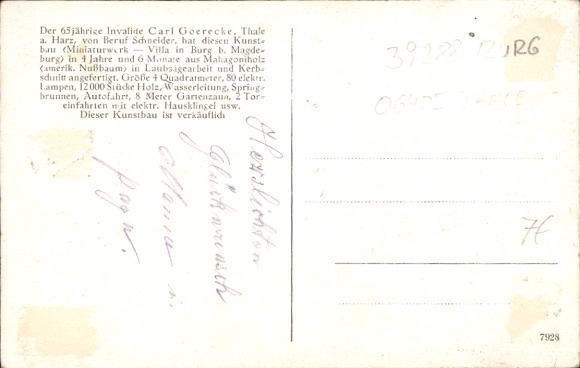 Der 65jährige Invalide Carl Goerecke, Thale
a. Harz, von Beruf Schneider, hat diesen Kunst-
bau (Miniaturwerk — Villa in Burg b. Magde-
burg) in 4 Jahre und 6 Monate aus Mahagoniholz
(amerik. Nußbaum) in Laubsägearbeit und Kerb-
schnitt angefertigt. Größe 4 Quadratmeter, 80 elektr.
Lampen, 12000 Stücke Holz, Wasserleitung, Spring-
brunnen, Autofahrt, 8 Meter Gartenzaun, 2 Tor-
einfahrten mit elektr. Hausklingel usw.
Dieser Kunstbau ist verkäuflich
Herzlichton
Glückwunsch
39288 BURG
06425 THALE
7€
7928